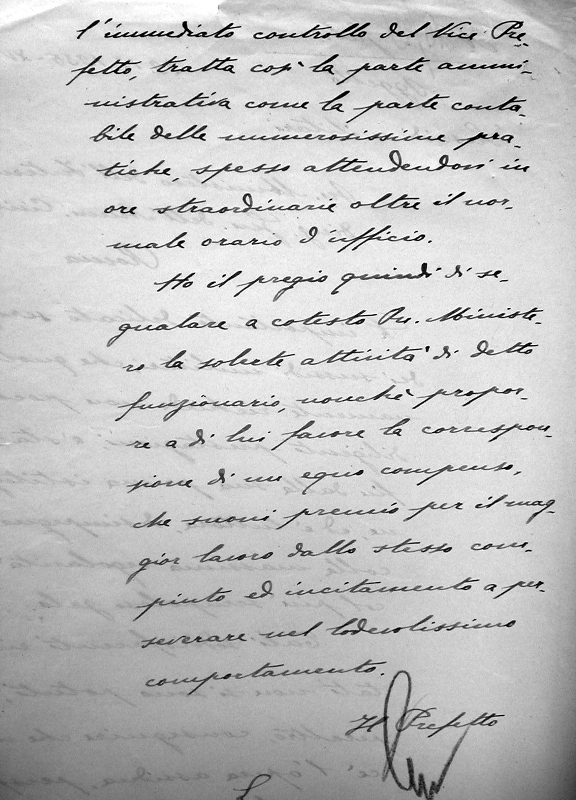 l'immediato controllo del Vice Pre-
fetto, tratta così la parte ammi-
nistrativa come la parte conta-
bile delle numerosissime pra-
tiche, spesso attendendovi in
ore straordinarie oltre il nor-
male orario d'ufficio.
Ho il pregio quindi di se-
gnalare a cotesto On. Ministe-
ro la solerte attività di detto
funzionario, nonchè propor-
re a di lui favore la correspon-
sione di un equo compenso,
che suoni premio per il mag-
gior lavoro dallo stesso com-
piuto ed incitamento a per-
severare nel lodevolissimo
comportamento.
Il Prefetto